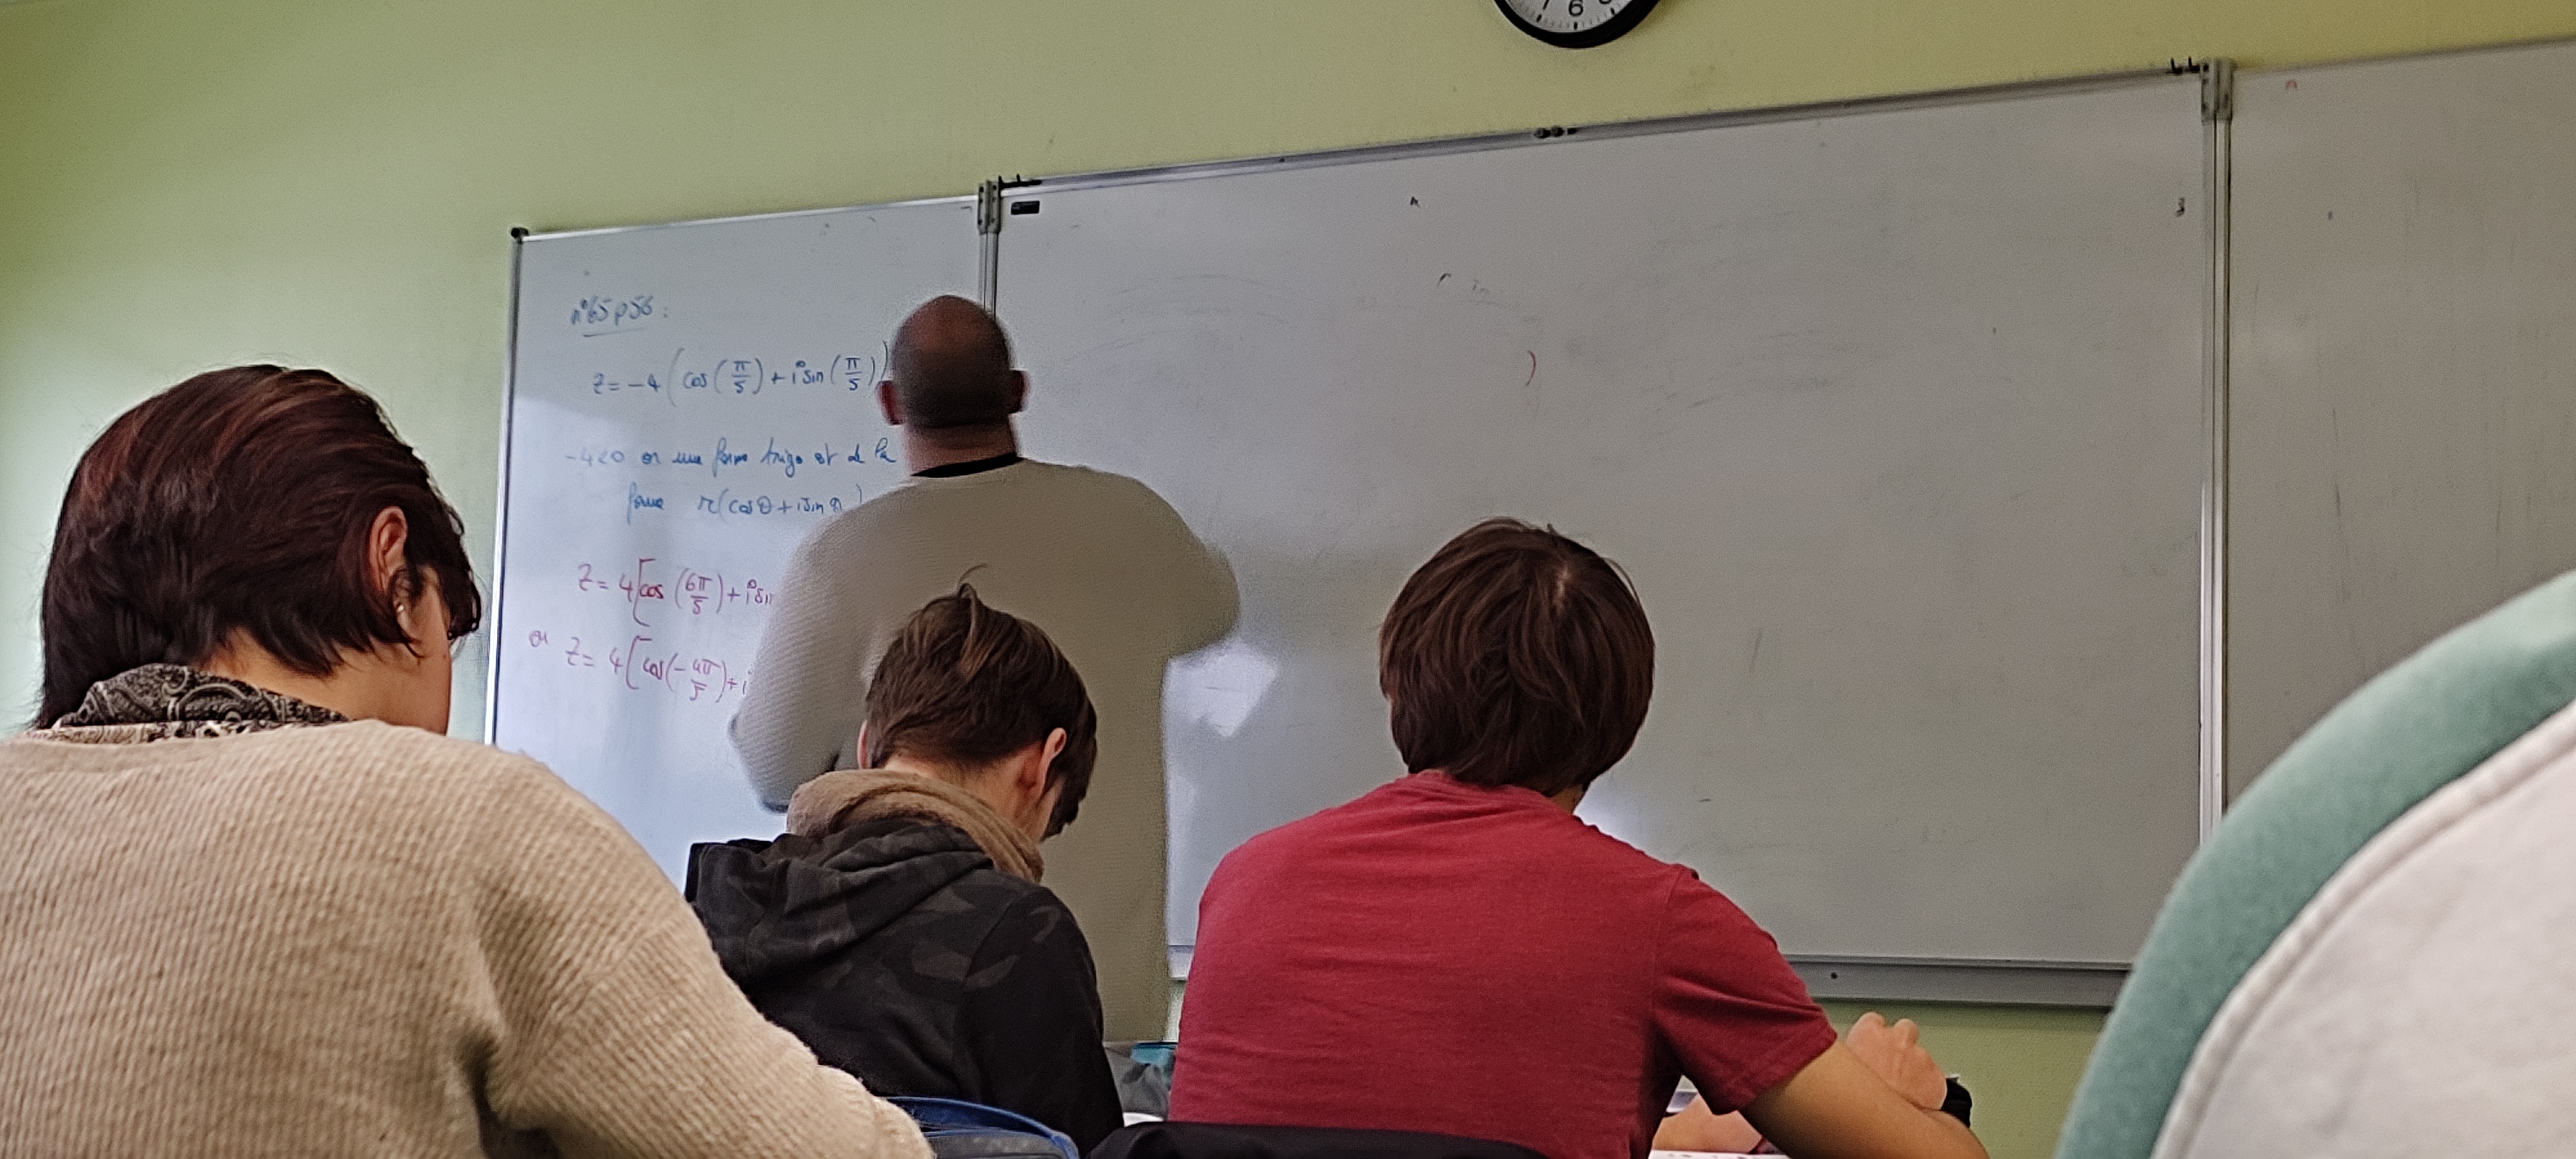 n°65 p56 :
z = -4 ( cos ( π/5 ) + i sin ( π/5 ) )
-4<0 or une forme trigo est de la
forme r(cos θ + i sin θ)
z = 4 [ cos ( 6π/5 ) + i sin
ou z = 4 [ cos ( - 4π/5 ) + i
6